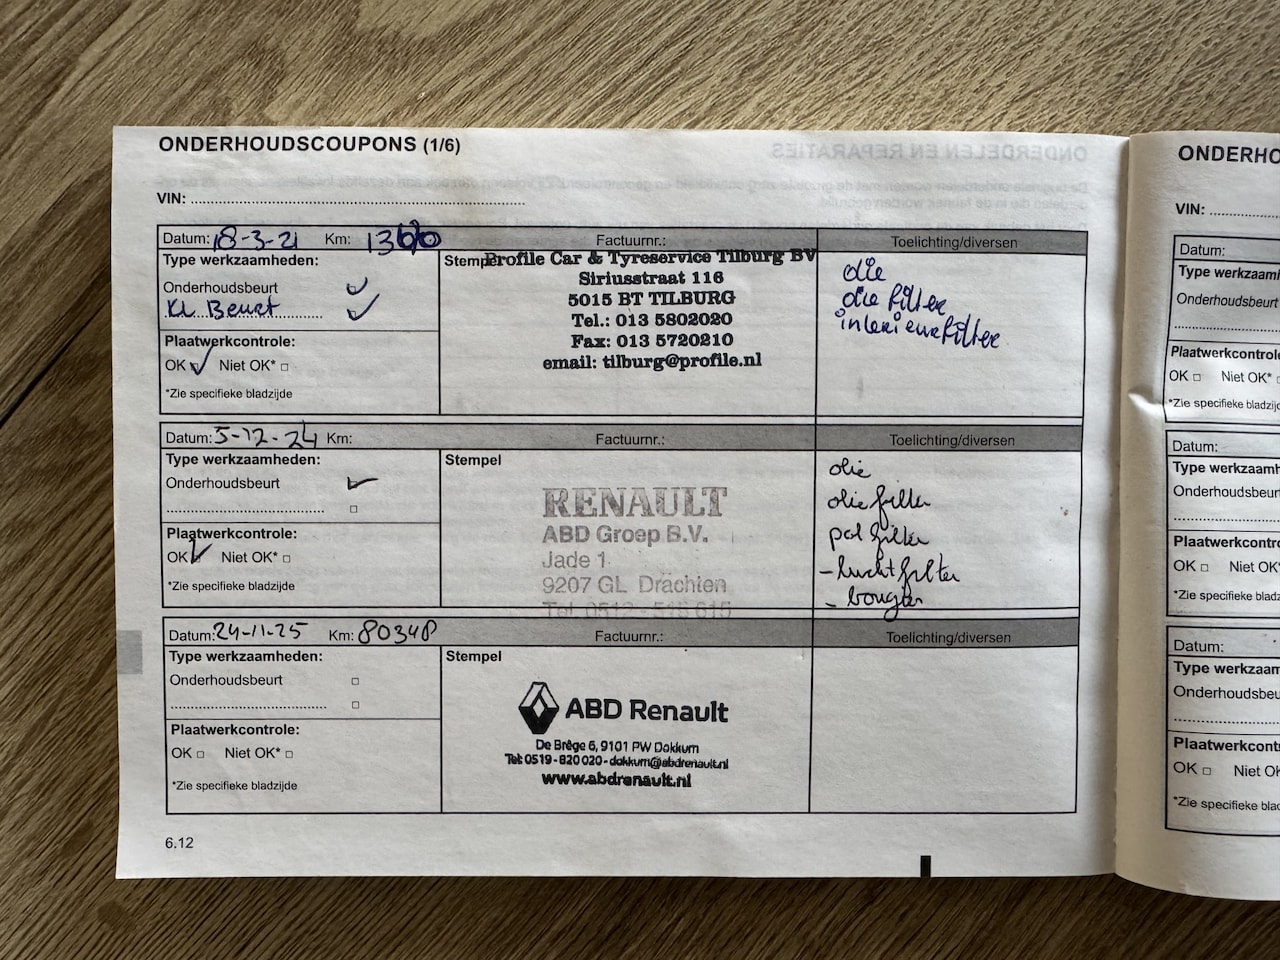 ONDERHOUDSCOUPONS (1/6)
VIN:
Datum: 18-3-21 Km: Factuurnr.: Toelichting/diversen
Type werkzaamheden:
Onderhoudsbeurt
Kl Beurt
Plaatwerkcontrole:
OK Niet OK*
*Zie specifieke bladzijde
Stempel
Profile Car & Tyreservice Tilburg BV
Siriusstraat 116
5015 BT TILBURG
Tel.: 013 5802020
Fax: 013 5720210
email: tilburg@profile.nl
olie
olie filter
interieurfilter
Datum: 5-12-24 Km: Factuurnr.: Toelichting/diversen
Type werkzaamheden:
Onderhoudsbeurt
Plaatwerkcontrole:
OK Niet OK*
*Zie specifieke bladzijde
Stempel
RENAULT
ABD Groep B.V.
Jade 1
9207 GL Drachten
Tel. 0512 -
olie
olie filter
pol filter
- luchtfilter
- bougies
Datum: 24-11-25 Km: 80348 Factuurnr.: Toelichting/diversen
Type werkzaamheden:
Onderhoudsbeurt
Plaatwerkcontrole:
OK Niet OK*
*Zie specifieke bladzijde
Stempel
ABD Renault
De Brêge 6, 9101 PW Dokkum
Tel: 0519 - 820 020 - dokkum@abdrenault.nl
www.abdrenault.nl
6.12
ONDERHO
VIN:
Datum:
Type werkzaamh
Onderhoudsbeurt
Plaatwerkcontrole
OK Niet OK*
*Zie specifieke bladz
Datum:
Type werkzaamh
Onderhoudsbeurt
Plaatwerkcontro
OK Niet OK*
*Zie specifieke bladz
Datum:
Type werkzaam
Onderhoudsbeu
Plaatwerkcont
OK Niet O
*Zie specifieke bla